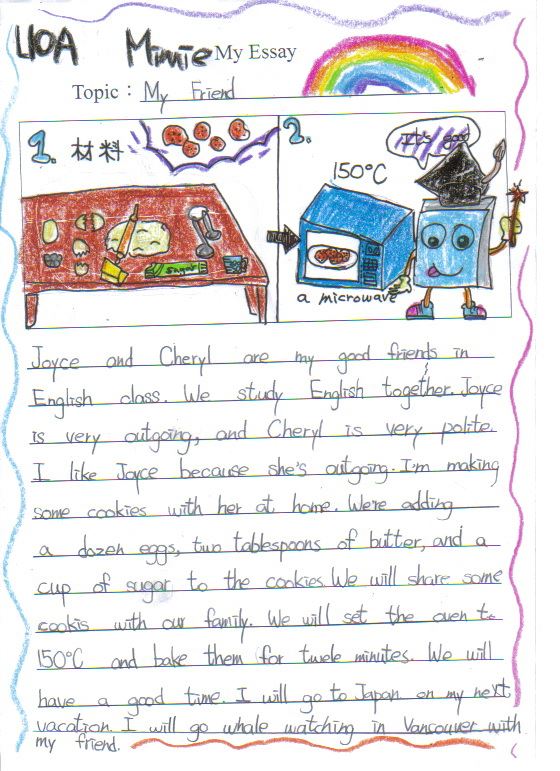 Minnie My Essay
Topic : My Friend
1. 材料
2.
It's good
150°C
sugar
a microwave
Joyce and Cheryl are my good friends in
English class. We study English together. Joyce
is very outgoing, and Cheryl is very polite.
I like Joyce because she's outgoing. I'm making
some cookies with her at home. We're adding
a dozen eggs, two tablespoons of butter, and a
cup of sugar to the cookies. We will share some
cookis with our family. We will set the oven to
150°C and bake them for twele minutes. We will
have a good time. I will go to Japan on my next
vacation. I will go whale watching in Vancouver with
my friend.